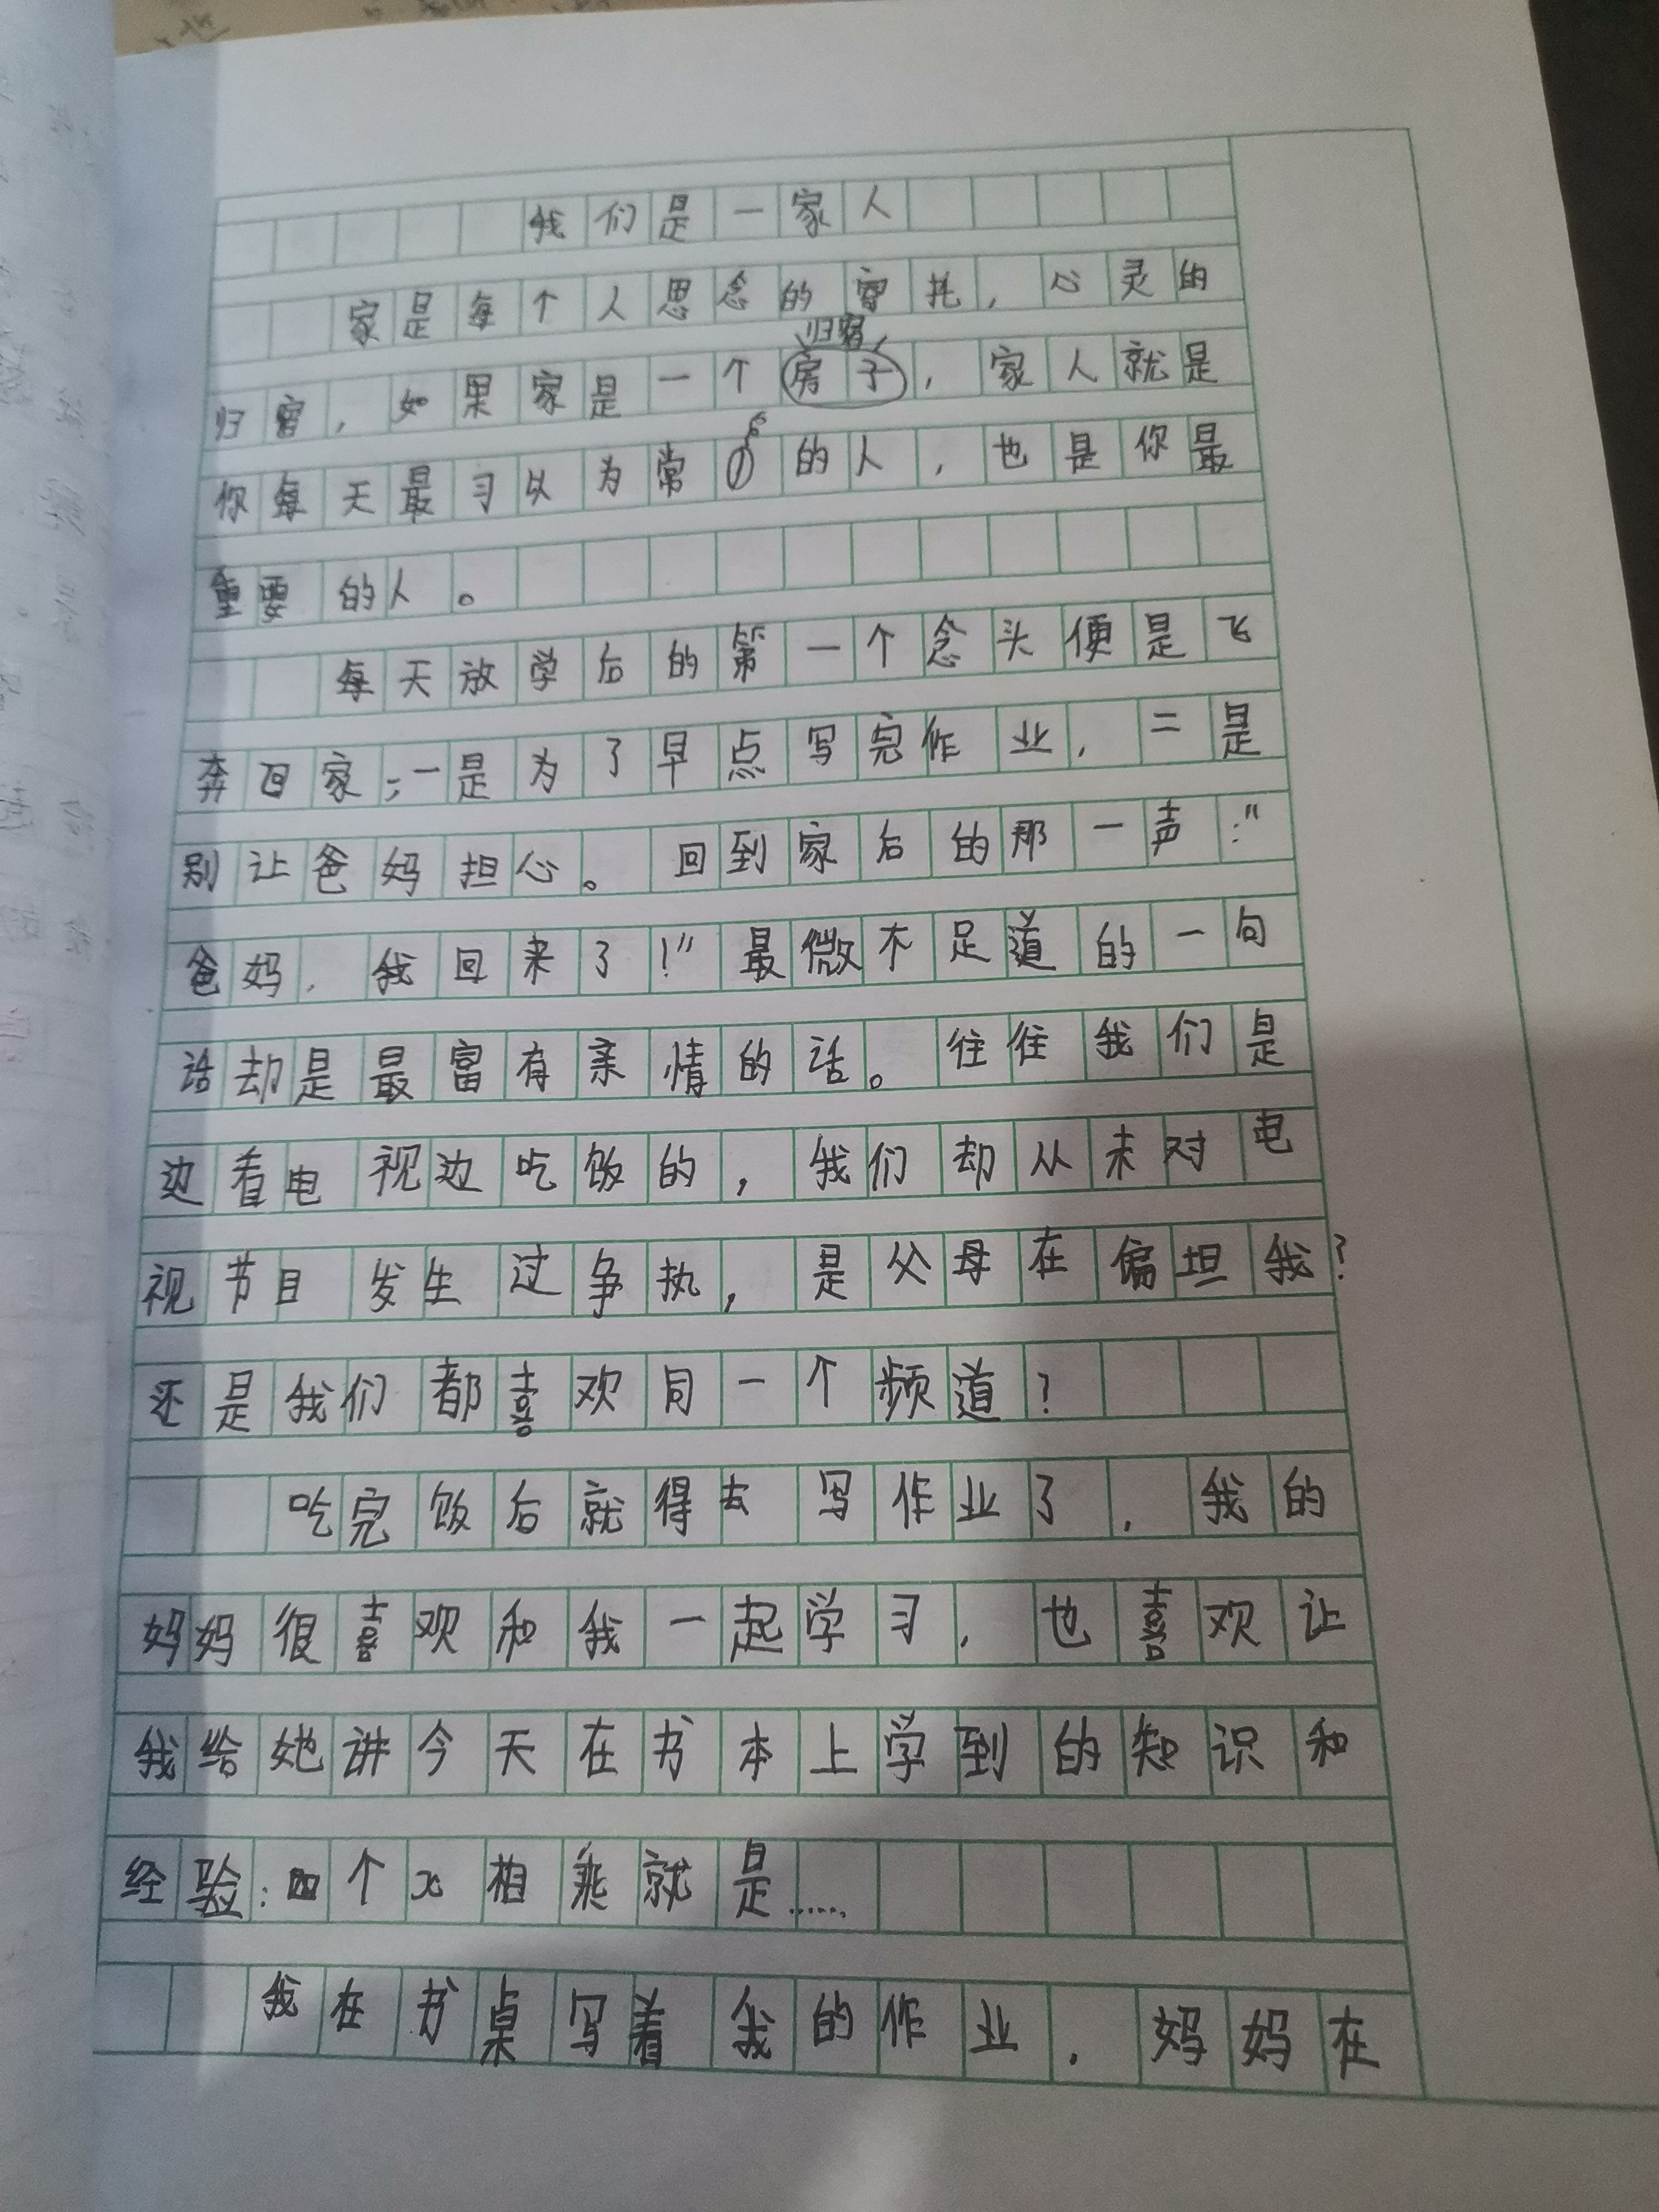 我们是一家人
家是每个人思念的寄托，心灵的
归宿
归宿，如果家是一个房子，家人就是
你每天最习以为常的人，也是你最
重要的人。
每天放学后的第一个念头便是飞
奔回家；一是为了早点写完作业，二是
别让爸妈担心。回到家后的那一声："
爸妈，我回来了！"最微不足道的一句
话却是最富有亲情的话。往往我们是
边看电视边吃饭的，我们却从未对电
视节目发生过争执，是父母在偏坦我？
还是我们都喜欢同一个频道？
吃完饭后就得去写作业了，我的
妈妈很喜欢和我一起学习，也喜欢让
我给她讲今天在书本上学到的知识和
经验：四个x相乘就是……
我在书桌写着我的作业，妈妈在